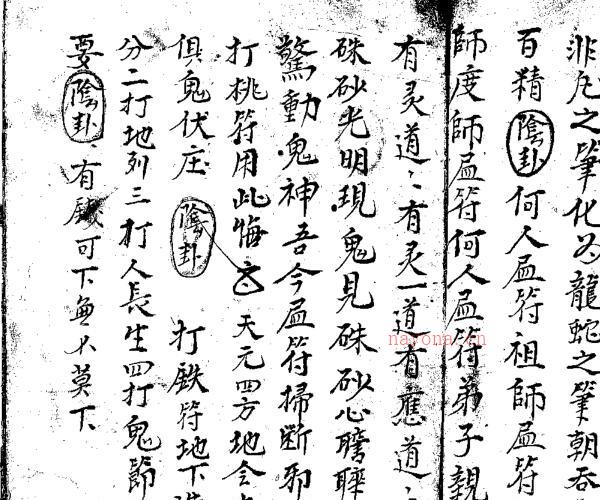 非凡之筆化为龍蛇之筆朝吞
百精 陰卦 何人画符祖師画符
師度師画符何人画符弟子親
有灵道〻有灵一道有應道〻
硃砂光明現鬼見硃砂心膽
驚動鬼神吾今画符掃断邪
打桃符用此悔 天元四方地会
俱鬼伏庄 陰卦 打鉄符地下
分二打地列三打人長生四打鬼節
要 陰卦 有 可下無人莫下
nayona.cn